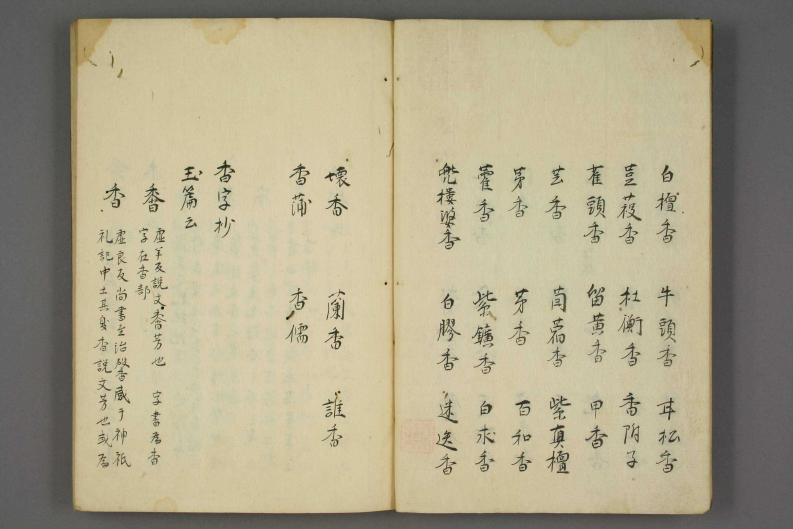 白檀香 牛頭香 甘松香
荳蔲香 杜衡香 香附子
雀頭香 留黄香 甲香
芸香 茼蒿香 紫真檀
茅香 茅香 百和香
藿香 紫鑛香 白求香
兜樓婆香 白膠香 迷迭香
懐香 蘭香 誰香
香蒲 香儒
香字抄
玉篇云
䅨 虚羊反説文䅨芳也 字書為香
字在香部
香 虚良反尚書至治馨香感于神祇
礼記中土其臭香説文芳也或為